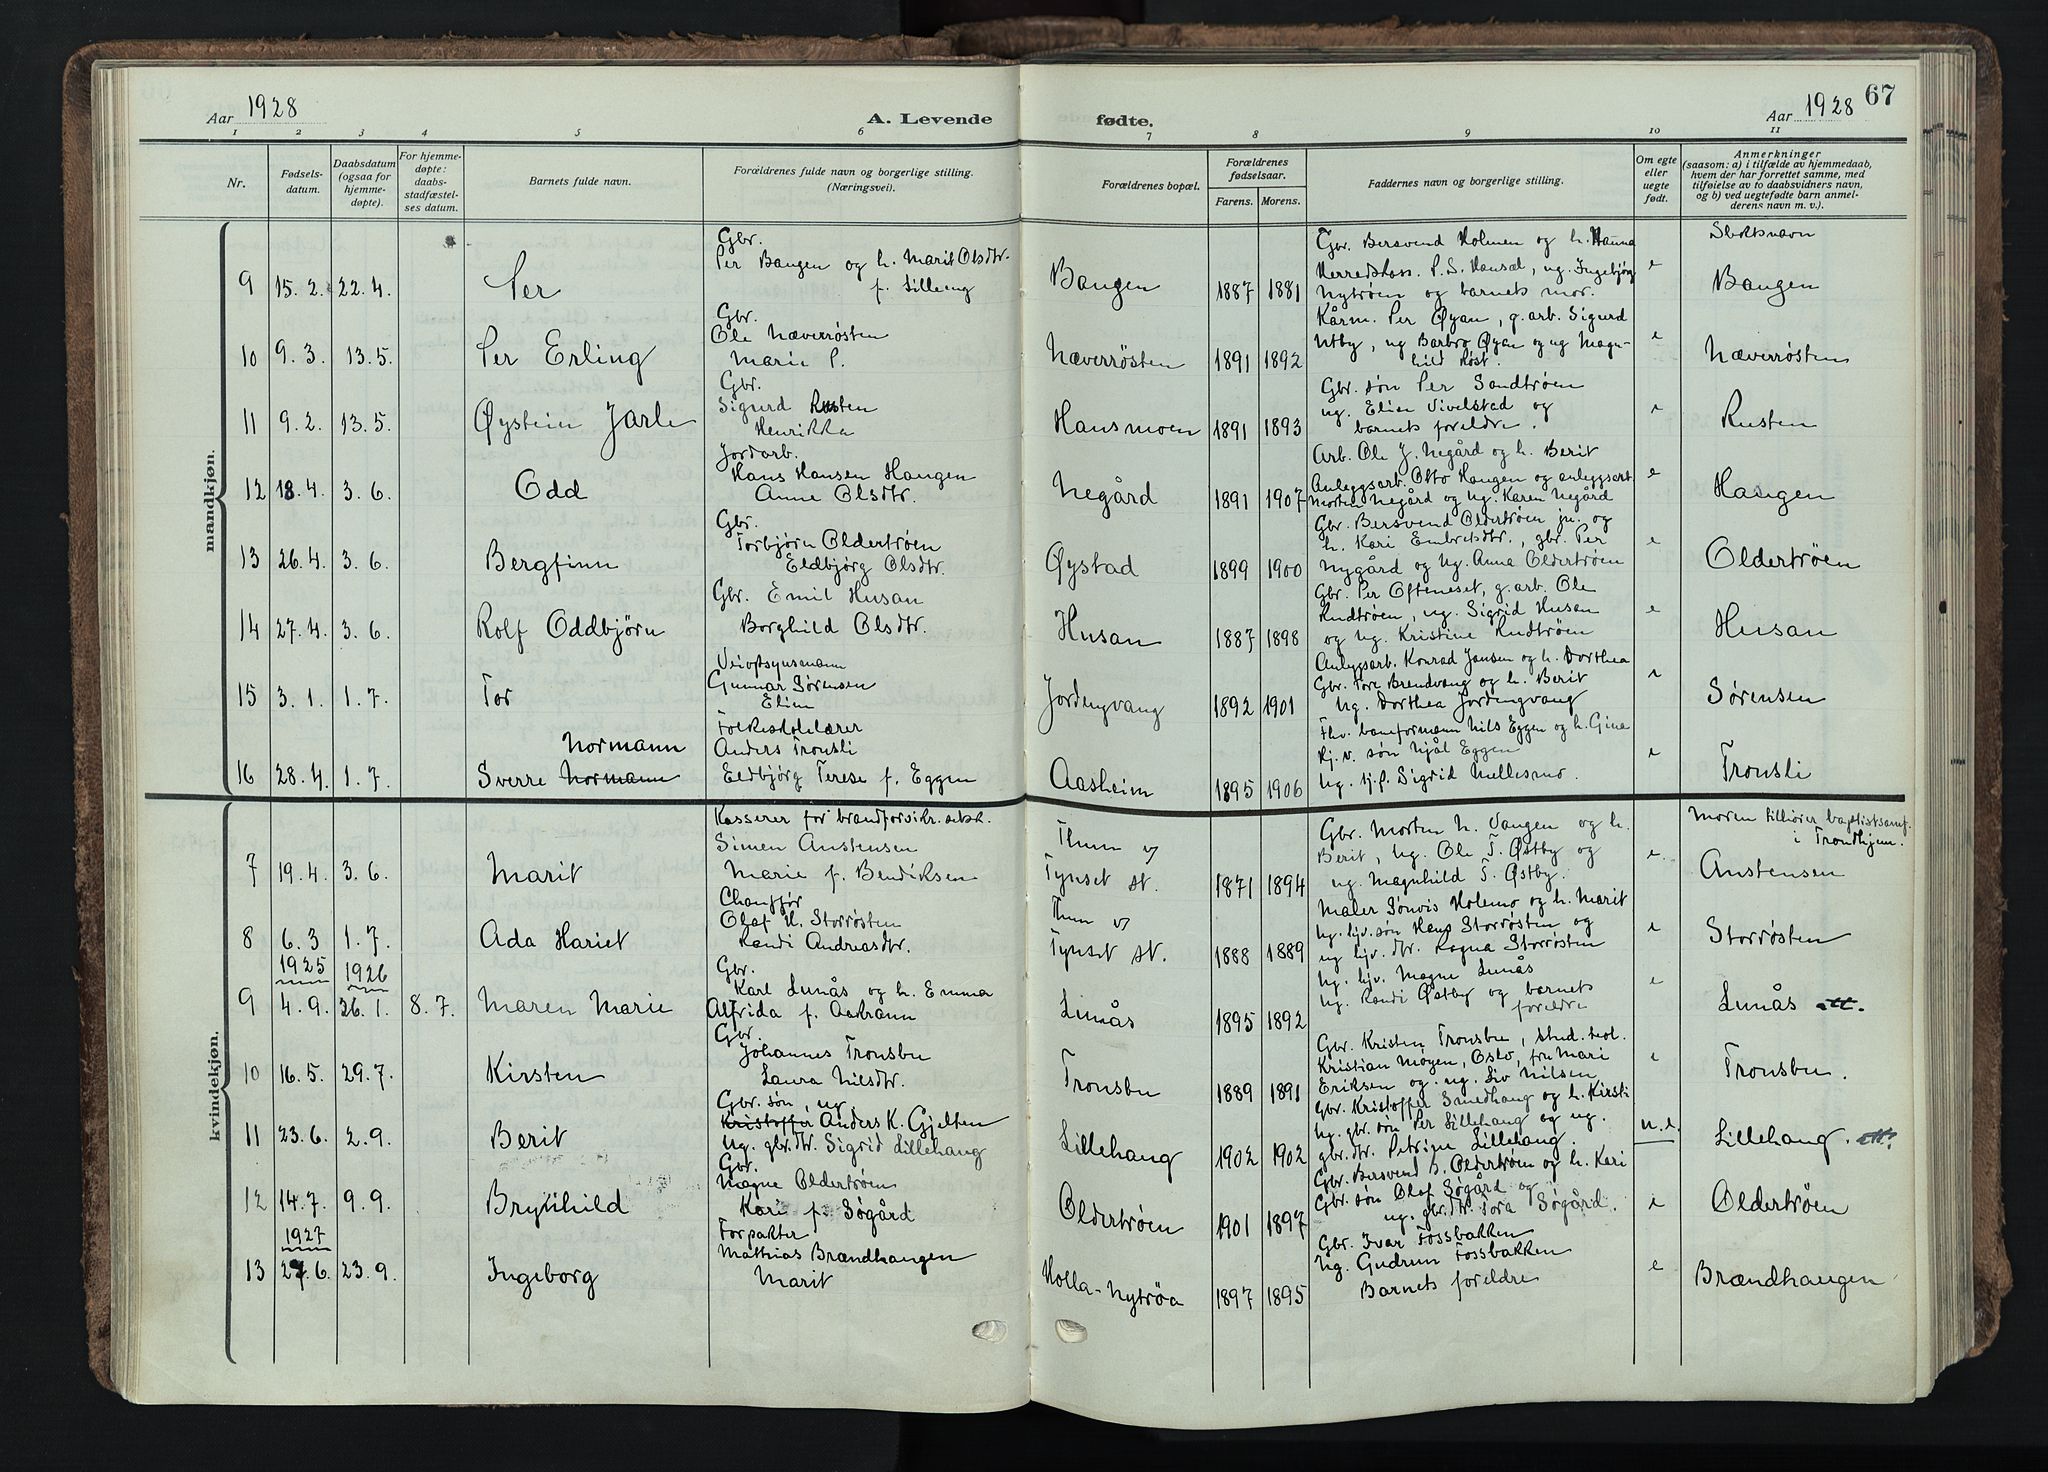 Aar 1928
A. Levende
fødte.
Aar 1928
67
1 2 3 4 5 6 7 8 9 10 11
Nr.
Fødsels-
datum.
Daabsdatum
(ogsaa for
hjemme-
døpte).
For hjemme-
døpte:
daabs-
stadfæstel-
ses datum.
Barnets fulde navn.
Forældrenes fulde navn og borgerlige stilling.
(Næringsvei).
Forældrenes bopæl.
Forældrenes
fødselsaar.
Farens. Morens.
Faddernes navn og borgerlige stilling.
Om egte
eller
uegte
født.
Anmerkninger
(saasom: a) i tilfælde av hjemmedaab,
hvem der har forrettet samme, med
tilføielse av to daabsvidners navn,
og b) ved uegtefødte barn anmel-
derens navn m. v.).
mandkjøn.
Slektsnavn
9 15. 2. 22. 4. Per
Gbr.
Per Bangen og h. Marit Olsdtr.
f. Lilleeng
Bangen 1887 1881
Gbr. Bersvend Holmen og h. Hanna
Herredskass. P. S. Hansæl, ug. Ingebjørg
Nytrøen og barnets mor.
e Bangen
10 9. 3. 13. 5. Per Erling
Gbr.
Ole Næverrøsten
Marie P.
Næverrøsten 1891 1892
Kårm. Per Øyan, g. arb. Sigurd
Utby, ug Barbro Øyan og ug Magn-
hild Røst.
e Næverrøsten
11 9. 2. 13. 5. Øystein Jarle
Gbr.
Sigurd Rusten
Henrikka
Hansmoen 1891 1893
Gbr. søn Per Sandtrøen
ug. Elise Vivelstad og
barnets foreldre.
e Rusten
12 18. 4. 3. 6. Odd
Jordarb.
Hans Hansen Haugen
Anne Olsdtr.
Negård 1891 1907
Arb. Ole J. Negård og h. Berit
Anleggsarb. Otto Haugen og anleggsarb.
Morten Negård og ug. Karen Negård
e Haugen
13 26. 4. 3. 6. Bergfinn
Gbr.
Torbjørn Oldertrøen
Eldbjørg Olsdtr.
Øystad 1899 1900
Gbr. Bersvend Oldertrøen jn. og
h. Kari Embretsdtr., gbr. Per
Nygård og ug. Anna Oldertrøen
e Oldertrøen
14 27. 4. 3. 6. Rolf Oddbjørn
Gbr. Emil Husan
Borghild Olsdtr.
Husan 1887 1898
Gbr. Per Ofteneset, g. arb. Ole
Rudtrøen, ug. Sigrid Husan
og ug. Kristine Rudtrøen
e Husan
15 3. 1. 1. 7. Tor
Veiopsynsmann
Gunnar Sørensen
Elim
Jordengvang 1892 1901
Anleggsarb. Konrad Jansen og h. Dorthea
Gbr. Tore Brendvang og h. Berit
ug. Dorthea Jordengvang
e Sørensen
16 28. 4. 1. 7. Normann
Sverre Normann
Folkeskolelærer
Anders Tronsli
Eldbjørg Terese f. Eggen
Aasheim 1895 1906
Fhv. baneformann Nils Eggen og h. Gina
Lj. v. søn Njål Eggen
ug. Sigrid Mellesmo.
e Tronsli
kvindekjøn.
7 19. 4. 3. 6. Marit
Kasserer for brandforsikr. selsk.
Simen Austensen
Marie f. Bendiksen
Thun v/
Tynset st. 1871 1894
Gbr. Morten N. Vangen og h.
Berit, ug. Ole T. Østby og
ug. Magnhild T. Østby.
e. Moren tilhører baptistsamf.
i Trondhjem.
Austensen
8 6. 3 1. 7. Ada Hariet
Chauffør
Olaf H. Storrøsten
Randi Andreasdtr.
Thun v/
Tynset st. 1888 1889
Maler Sönvis Holemo og h. Marit
ug. ljv. søn Hans Storrøsten og
ug ljv. dtr. Ragna Storrøsten
e Storrøsten
1925 1926
9 4. 9. 26. 1. 8. 7. Maren Marie
Gbr.
Karl Lunås og h. Emma
Alfrida f. Aasbrann
Lunås 1895 1892
ug. ljv. Magne Lunås
ug. Randi Østby og barnets
foreldre
e Lunås att.
10 16. 5. 29. 7. Kirsten
Gbr.
Johannes Tronsbu
Laura Nilsdtr.
Tronsbu 1889 1891
Gbr. Kristen Tronsbu, stud. teol.
Kristian Møgen, Oslo, fru Mari
Eriksen og ug. Liv Nilsen
e Tronsbu.
11 23. 6. 2. 9. Berit
Gbr. søn, ug
Kristoffer Anders K. Gjelten
ug. gbr. dtr. Sigrid Lillehaug
Lillehaug 1902 1902
Gbr. Kristoffer Smedhaug og h. Kirsti
ug. gbr. søn Per Lillehaug og ug.
gbr. dtr. Petrine Lillehaug.
u. e. Lillehaug. att.
12 14. 7. 9. 9. Brynhild
Gbr.
Magne Oldertrøen
Kari f. Søgård
Oldertrøen 1901 1897
Gbr. Bersvend B. Oldertrøen og h. Kari
Gbr. søn Olaf Søgård og
ug. gbr. dtr. Tora Søgård.
e Oldertrøen
1927
13 27. 6. 23. 9. Ingeborg
Forpakter
Mathias Brændhaugen
Marit
Holla-Nytrøa 1897 1895
Gbr. Ivar Fossbakken
ug. Gudrun Fossbakken
Barnets foreldre
e Brændhaugen